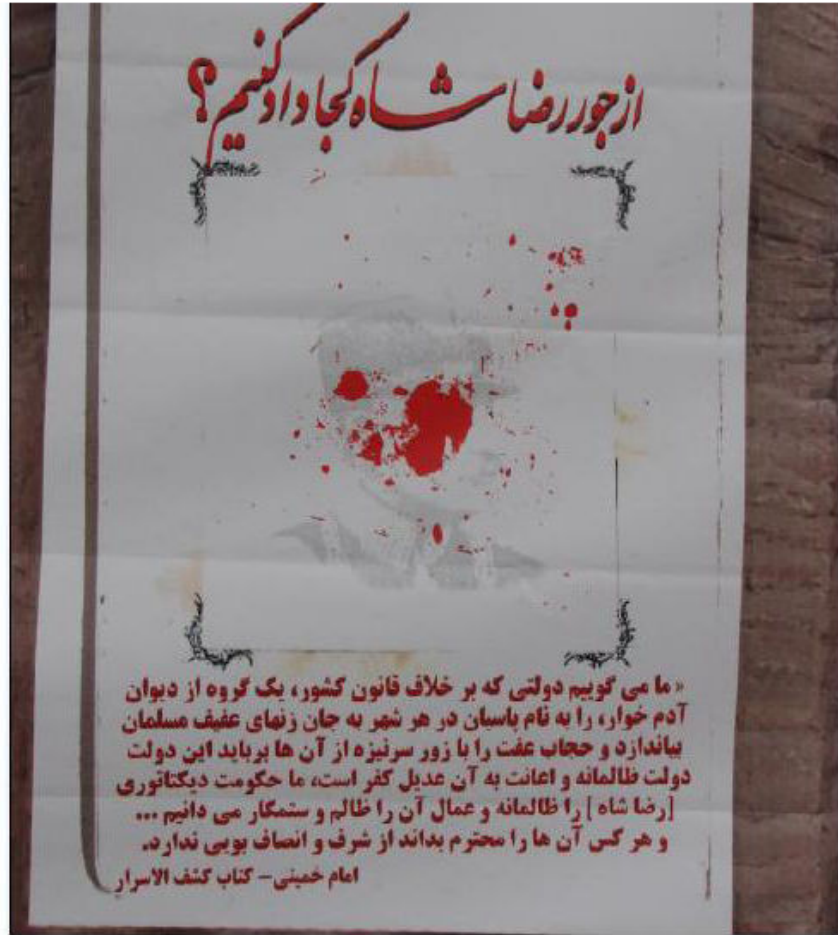 از جور رضا شاه کجا داد کنیم؟
« ما می گوییم دولتی که بر خلاف قانون کشور، یک گروه از دیوان
آدم خوار، را به نام پاسبان در هر شهر به جان زنهای عفیف مسلمان
بیاندازد و حجاب عفت را با زور سرنیزه از آن ها برباید این دولت
دولت ظالمانه و اعانت به آن عدیل کفر است، ما حکومت دیکتاتوری
[رضا شاه ] را ظالمانه و عمال آن را ظالم و ستمکار می دانیم ...
و هر کس آن ها را محترم بداند از شرف و انصاف بویی ندارد.
امام خمینی- کتاب کشف الاسرار